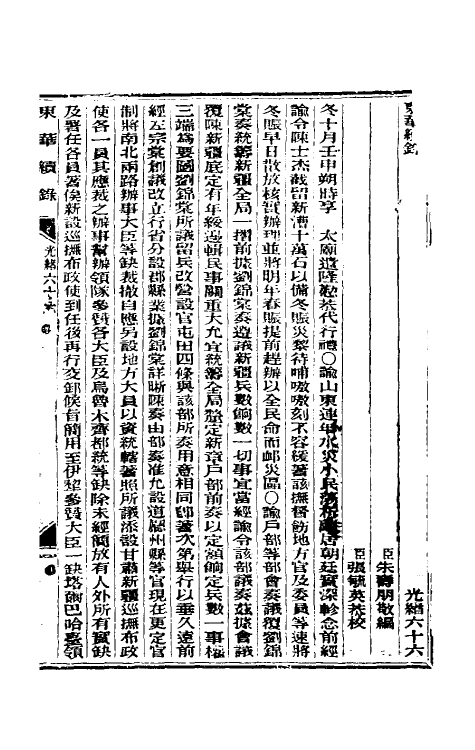 東華續錄
光緒六十六
臣朱壽朋敬編
臣張毓英恭校
冬十月壬申朔時享　太廟遣陸懋荼代行禮○諭山東連年水災小民蕩析離居朝廷實深軫念前經
諭令陳士杰截留新漕十萬石以備冬賑災黎待哺嗷嗷刻不容緩著該撫督飭地方官及委員等速將
冬賑早日散放核實辦理並將明年春賑提前趕辦以全民命而卹災區○諭戶部等部會奏議覆劉錦
棠奏統籌新疆全局一摺前據劉錦棠奏遵議新疆兵數餉數一切事宜當經諭令該部議奏茲據會議
覆陳新疆底定有年綏邊輯民事關重大允宜統籌全局釐定新章戶部前奏以定額餉定兵數一事權
三端為要圖劉錦棠所議留兵改營設官屯田四條與該部所奏用意相同卽著次第舉行以垂久遠前
經左宗棠創議改立行省分設郡縣業據劉錦棠詳晰陳奏由部奏准允設道廳州縣等官現在更定官
制將南北兩路辦事大臣等缺裁撤自應另設地方大員以資統轄著照所議添設甘肅新疆巡撫布政
使各一員其應裁之辦事幫辦領隊參贊各大臣及烏魯木齊都統等缺除未經簡放有人外所有實缺
及署任各員著俟新設巡撫布政使到任後再行交卸候旨簡用至伊犂參贊大臣一缺塔爾巴哈臺領
東華續錄
光緒六十六